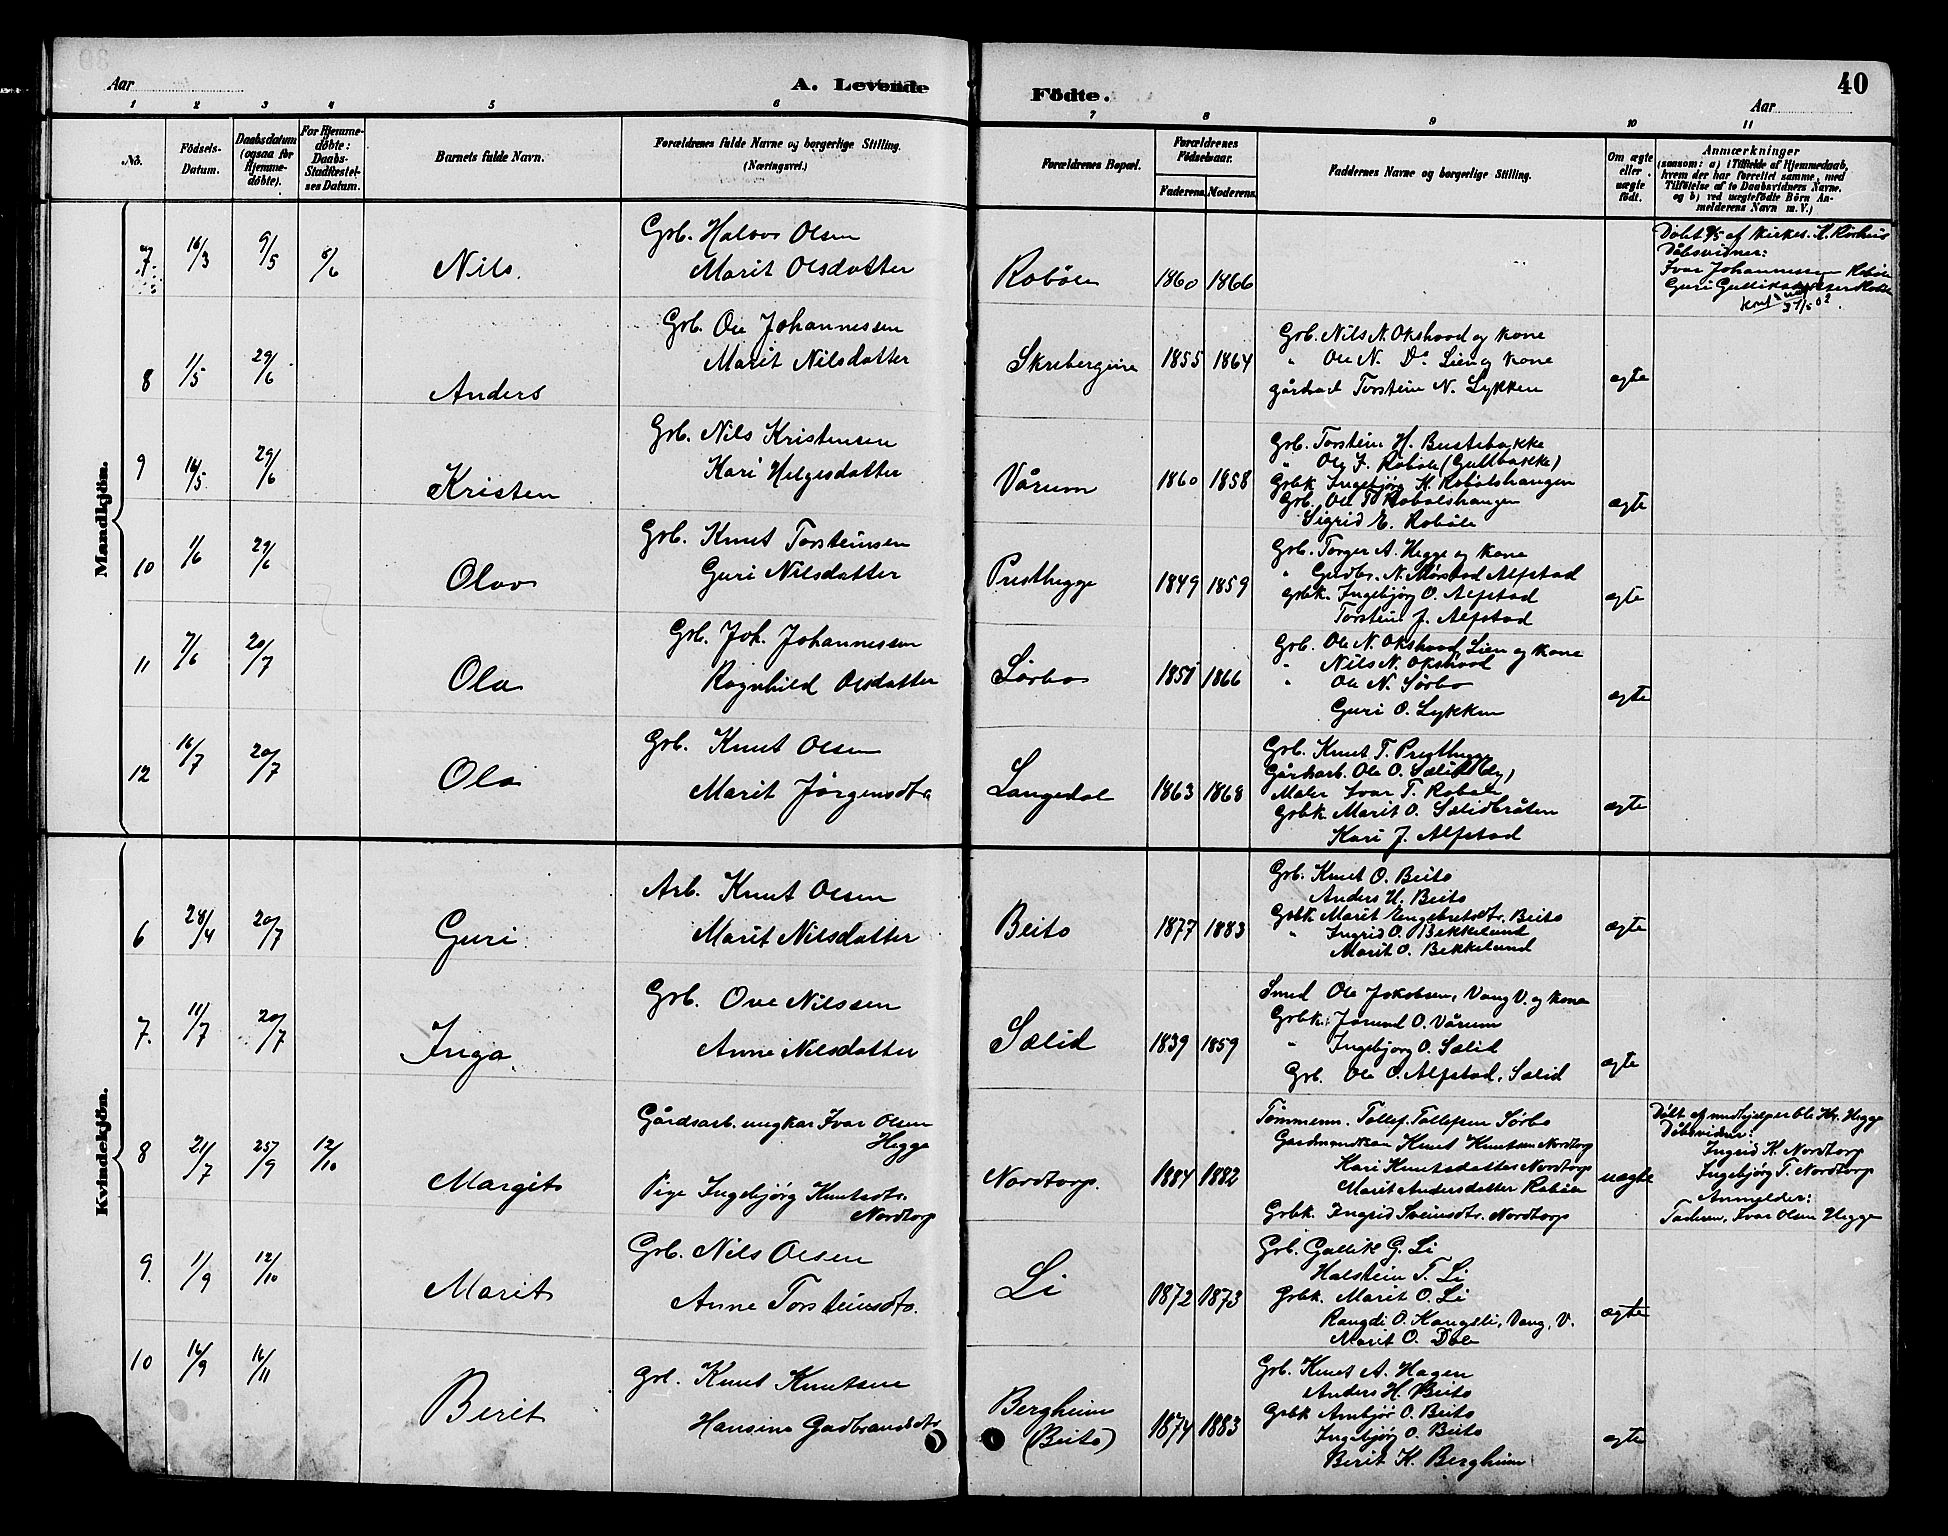 Aar
A. Levende
Födte.
40
Aar
1 2 3 4 5 6 7 8 9 10 11
No.
Födsels-Datum.
Daabsdatum (ogsaa for Hjemmedöbte).
For Hjemmedöbte: Daabs-Stadfæstelses Datum.
Barnets fulde Navn.
Forældrenes fulde Navne og borgerlige Stilling. (Næringsvei.)
Forældrenes Bopæl.
Forældrenes Födselsaar.
Faderens. Moderens.
Faddernes Navne og borgerlige Stilling.
Om ægte eller uægte födt.
Anmærkninger
(saasom: a) i Tilfælde af Hjemmedaab, hvem der har forrettet samme, med Tilföielse af to Daabsvidners Navne. og b) ved uægtefödte Börn Anmelderens Navn m. V.)
Mandkjön.
7 16/3 9/5 8/6 Nils.
Grb. Halvor Olsen
Marit Olsdatter
Robøle 1860 1866
Døbt 9/5 af kirkes.
Dåbsvidner:
Ivar Johannessen Robøle
Guri
8 1/5 29/6 Anders
Grb. Ole Johannessen
Marit Nilsdatter
Skrebergene 1855 1864
Grb. Nils N. Okshovd og kone
" Ole N. Do Lien og kone
gårdarb Torstein N. Lykken
ægte
9 14/5 29/6 Kristen
Grb. Nils Kristensen
Kari Helgesdatter
Vårum 1860 1858
Grb. Torstein H. Bustebakke
" Ole J. Robøle (Gullbakke)
Grbk Ingebjørg K. Robølshaugen
Grb. Ole T. Robølshaugen
Sigrid E. Robøle
ægte
10 1/6 29/6 Olav
Grb. Knut Torsteinsen
Guri Nilsdatter
Presthegge 1849 1859
Grb. Torger A. Hegge og kone
" Gudbr. N. Mørstad Alfstad
grbk. Ingebjørg O. Alfstad
Torstein J. Alfstad
ægte
11 7/6 20/7 Ola
Grb. Joh. Johannessen
Ragnhild Olsdatter
Sørbo 1851 1866
Grb. Ole N. Okshovd, Lien og kone
" Nils N. Okshovd
" Ole N. Sørbo
Guri O. Lykken
ægte
12 16/7 20/7 Ola
Grb. Knut Olsen
Marit Jørgensdtr
Langedal 1863 1868
Grb. Knut T. Presthegge
Gårdarb. Ole O. Sælid
Maler Ivar T. Robøle
Grbk. Marit O. Sælidbråten
Kari J. Alfstad
ægte
Kvindekjön.
6 28/4 20/7 Guri
Arb. Knut Olsen
Marit Nilsdatter
Beito 1877 1883
Grb. Knut O. Beito
Anders H. Beito
Grbk Marit Engebretsdtr. Beito
" Ingrid O. Bekkelund
Marit O. Bekkelund
ægte
7. 11/7 20/7 Inga
Grb. Ove Nilssen
Anne Nilsdatter
Sælid 1839 1859
Smed Ole Jakobsen, Vang V. og kone
Grbk. Jørund O. Vårum
" Ingebjørg O. Sælid
Grb. Ole O. Alfstad, Sælid
ægte
8 21/7 25/9 12/10 Margit
Gårdsarb. ungkar Ivar Olsen
Hegge
Pige Ingebjørg Knutsdtr.
Nordtorp
Nordtorp. 1884 1882
Tømmerm. Tollef Tollefsen Sørbo
Gardmandkar Knut Knutsen Nordtorp
Kari Knutsdatter Nordtorp
Marit Andersdatter Robøle
Grbk. Ingrid Sveinsdtr. Nordtorp
uægte
Døbt af medhjelper Ole Kr. Hegge
Dåbsvidner:
Ingrid K. Nordtorp
Ingebjørg T. Nordtorp
Anmelder:
Faderen, Ivar Olsen Hegge
9. 1/9 12/10 Marit
Grb. Nils Olsen
Anne Torsteinsdtr.
Li 1872 1873
Grb. Gullik G. Li
Halstein T. Li
Grbk. Marit O. Li
Rangdi O. Haugsli, Vang, V.
Marit O. Døle
ægte
10 16/9 16/11 Berit
Grb. Knut Knutsen
Hansine Gudbrandsdtr
Bergheim
(Beito) 1874 1883
Grb. Knut A. Hagen
Anders H. Beito
Grbk Ambjør O. Beito
Ingebjørg O. Beito
Berit K. Bergheim
ægte